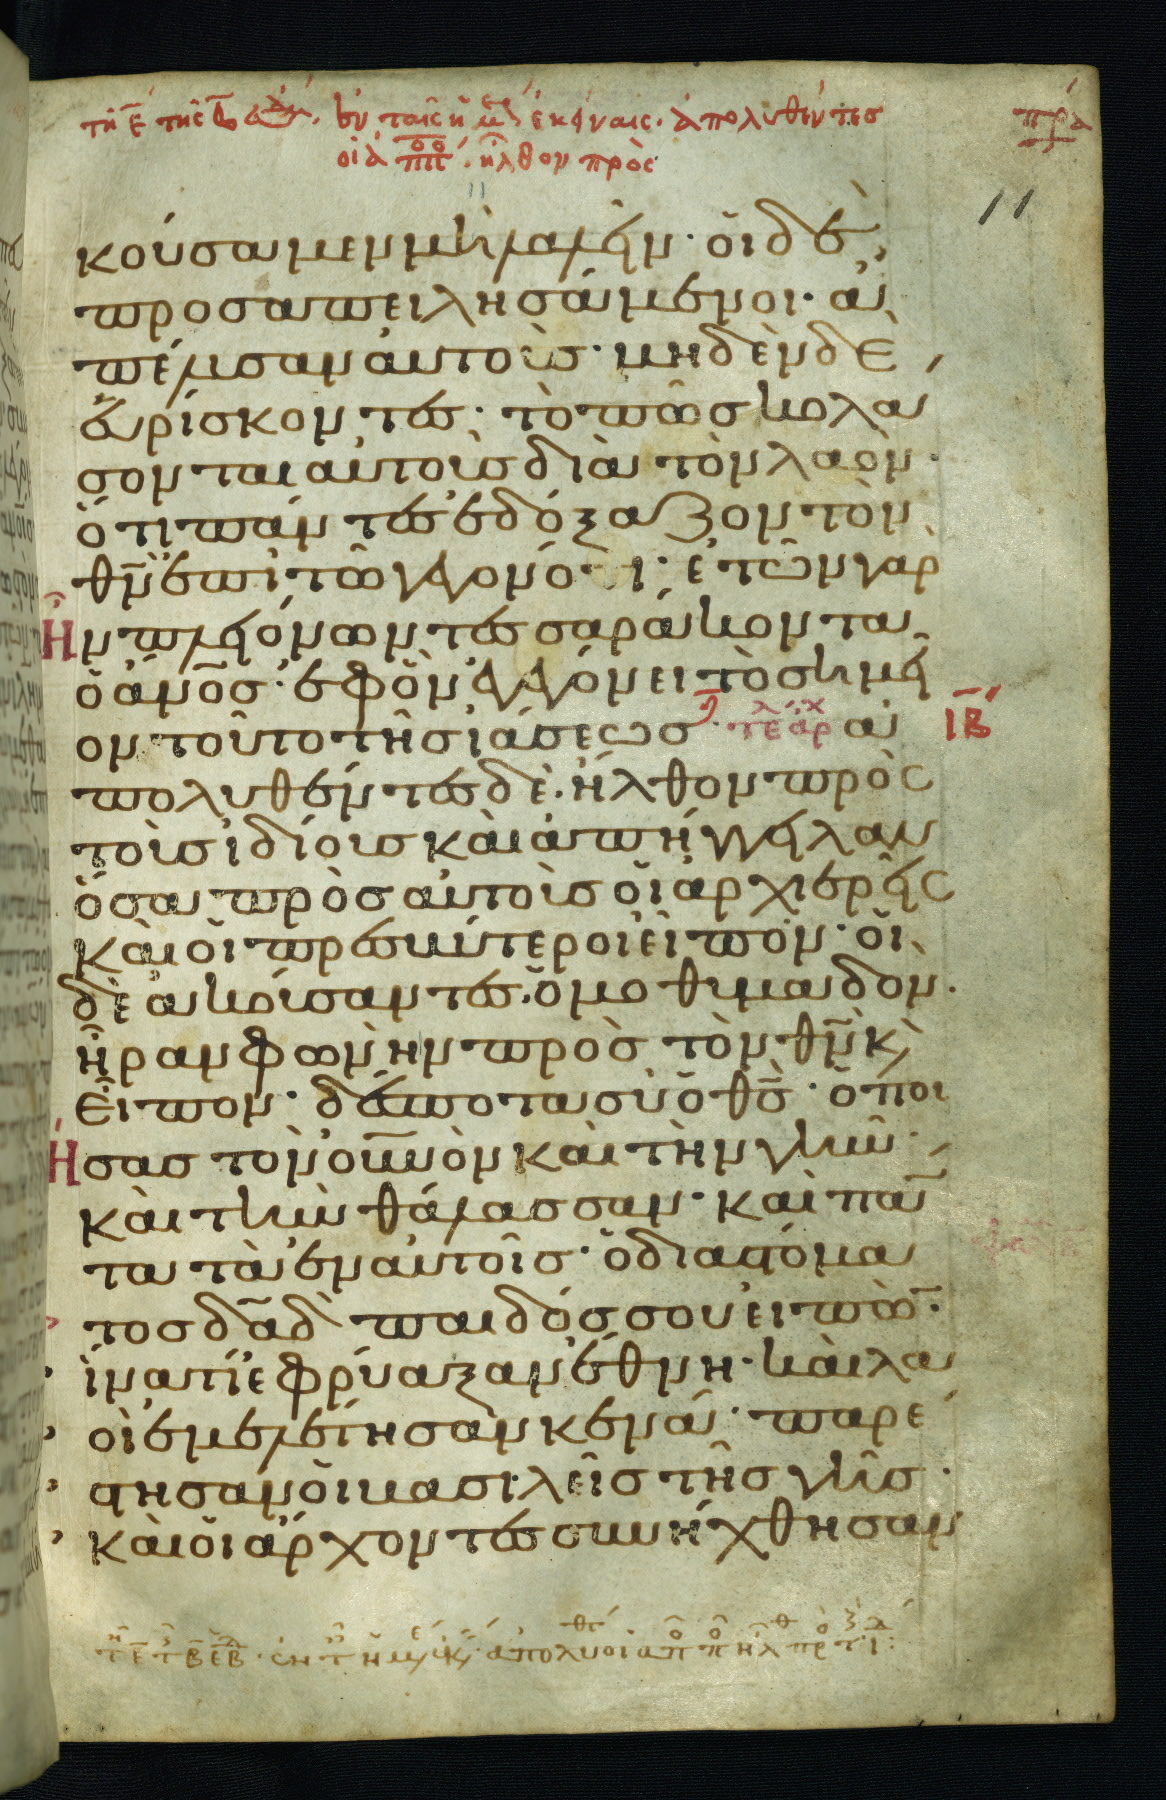 τῆ ε̄ τῆς β̄ ἑβδ. ἐν ταῖς ἡμ ἐκείναις. ἀπολυθέντες
οἱ ἀππ. ἦλθον πρὸς
πρα
11
κούσαμεν μᾶλλον· οἱ δὲ
προσαπειλησάμενοι· ἀ
πέλυσαν αὐτοὺς· μηδὲν δὲ
εὑρίσκοντες· τὸ πῶς κολά
σονται αὐτοὺς διὰ τὸν λαὸν·
ὅτι πάντες ἐδόξαζον τὸν
θν̄ ἐπὶ τῶ γεγονότι· ἐτῶν γὰρ
ἦν πλειόνων τεσσαράκοντα
ὁ ἄνο̄ς· ἐφ ὃν γεγόνει τὸ σημεῖ
ον τοῦτο τῆς ἰάσεως· τε αρχ ἀ
ΙΒ
πολυθέντες δὲ. ἦλθον πρὸς
τοὺς ἰδίους καὶ ἀπήγγειλαν
ὅσα πρὸς αὐτοὺς οἱ ἀρχιερεῖς
καὶ οἱ πρεσβύτεροι εἶπον· οἱ
δὲ ἀκούσαντες. ὁμοθυμαδὸν.
ἦραν φωνὴν πρὸς τὸν θν̄ κ
εἶπον· δέσποτα σὺ ὁ θς̄· ὁ ποι
ήσας τὸν οὐνὸν καὶ τὴν γῆν·
καὶ τὴν θάλασσαν· καὶ πάν
τα τὰ ἐν αὐτοῖς· ὁ διὰ στόμα
τος δᾱδ παιδός σου εἰπὼν·
ἱνατί ἐφρύαξαν ἔθνη· καὶ λα
οὶ ἐμελέτησαν κενά· παρέ
στησαν οἱ βασιλεῖς τῆς γῆς·
καὶ οἱ ἄρχοντες συνήχθησαν